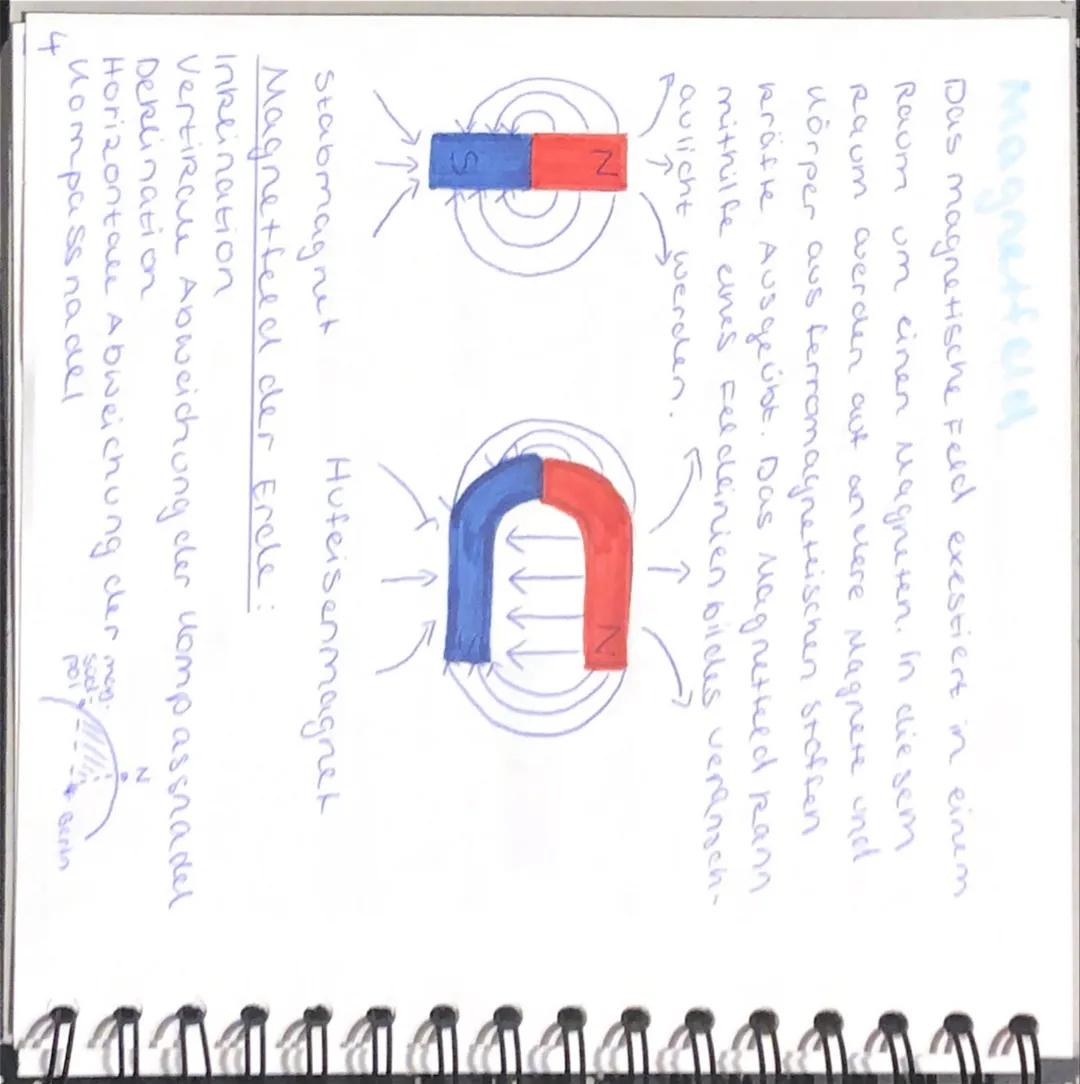 Magnetfeld
Das magnetische Feld exestiert in einem
Raum um einen Magneten. In diesem
Raum werden auf andere Magnete und
Körper aus ferromagnetischen Stoffen
Kräfte Ausgeübt. Das Magnetfeld kann
mithilfe eines Feldlinienbildes veransch-
aulicht werden.
N
S
N
S
Stabmagnet
Hufeisenmagnet
Magnetfeld der Erde:
Inklination
Vertikale Abweichung der Kompassnadel
Deklination
Horizontale Abweichung der
Kompassnadel
mag.
Süd-
pol
N
Berlin
4